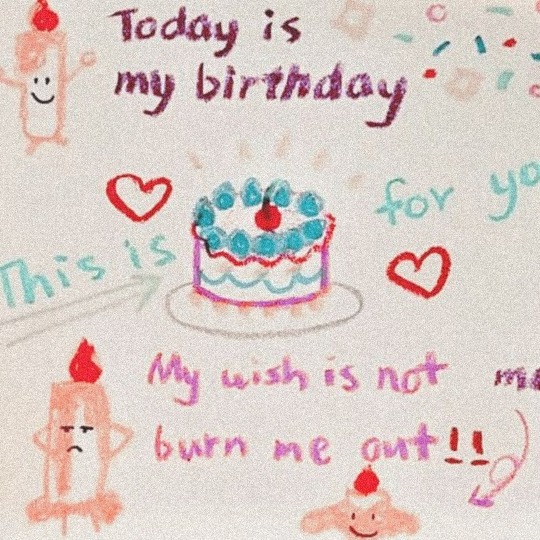 Today is
my birthday
This is for yo
My wish is not
burn me out!!